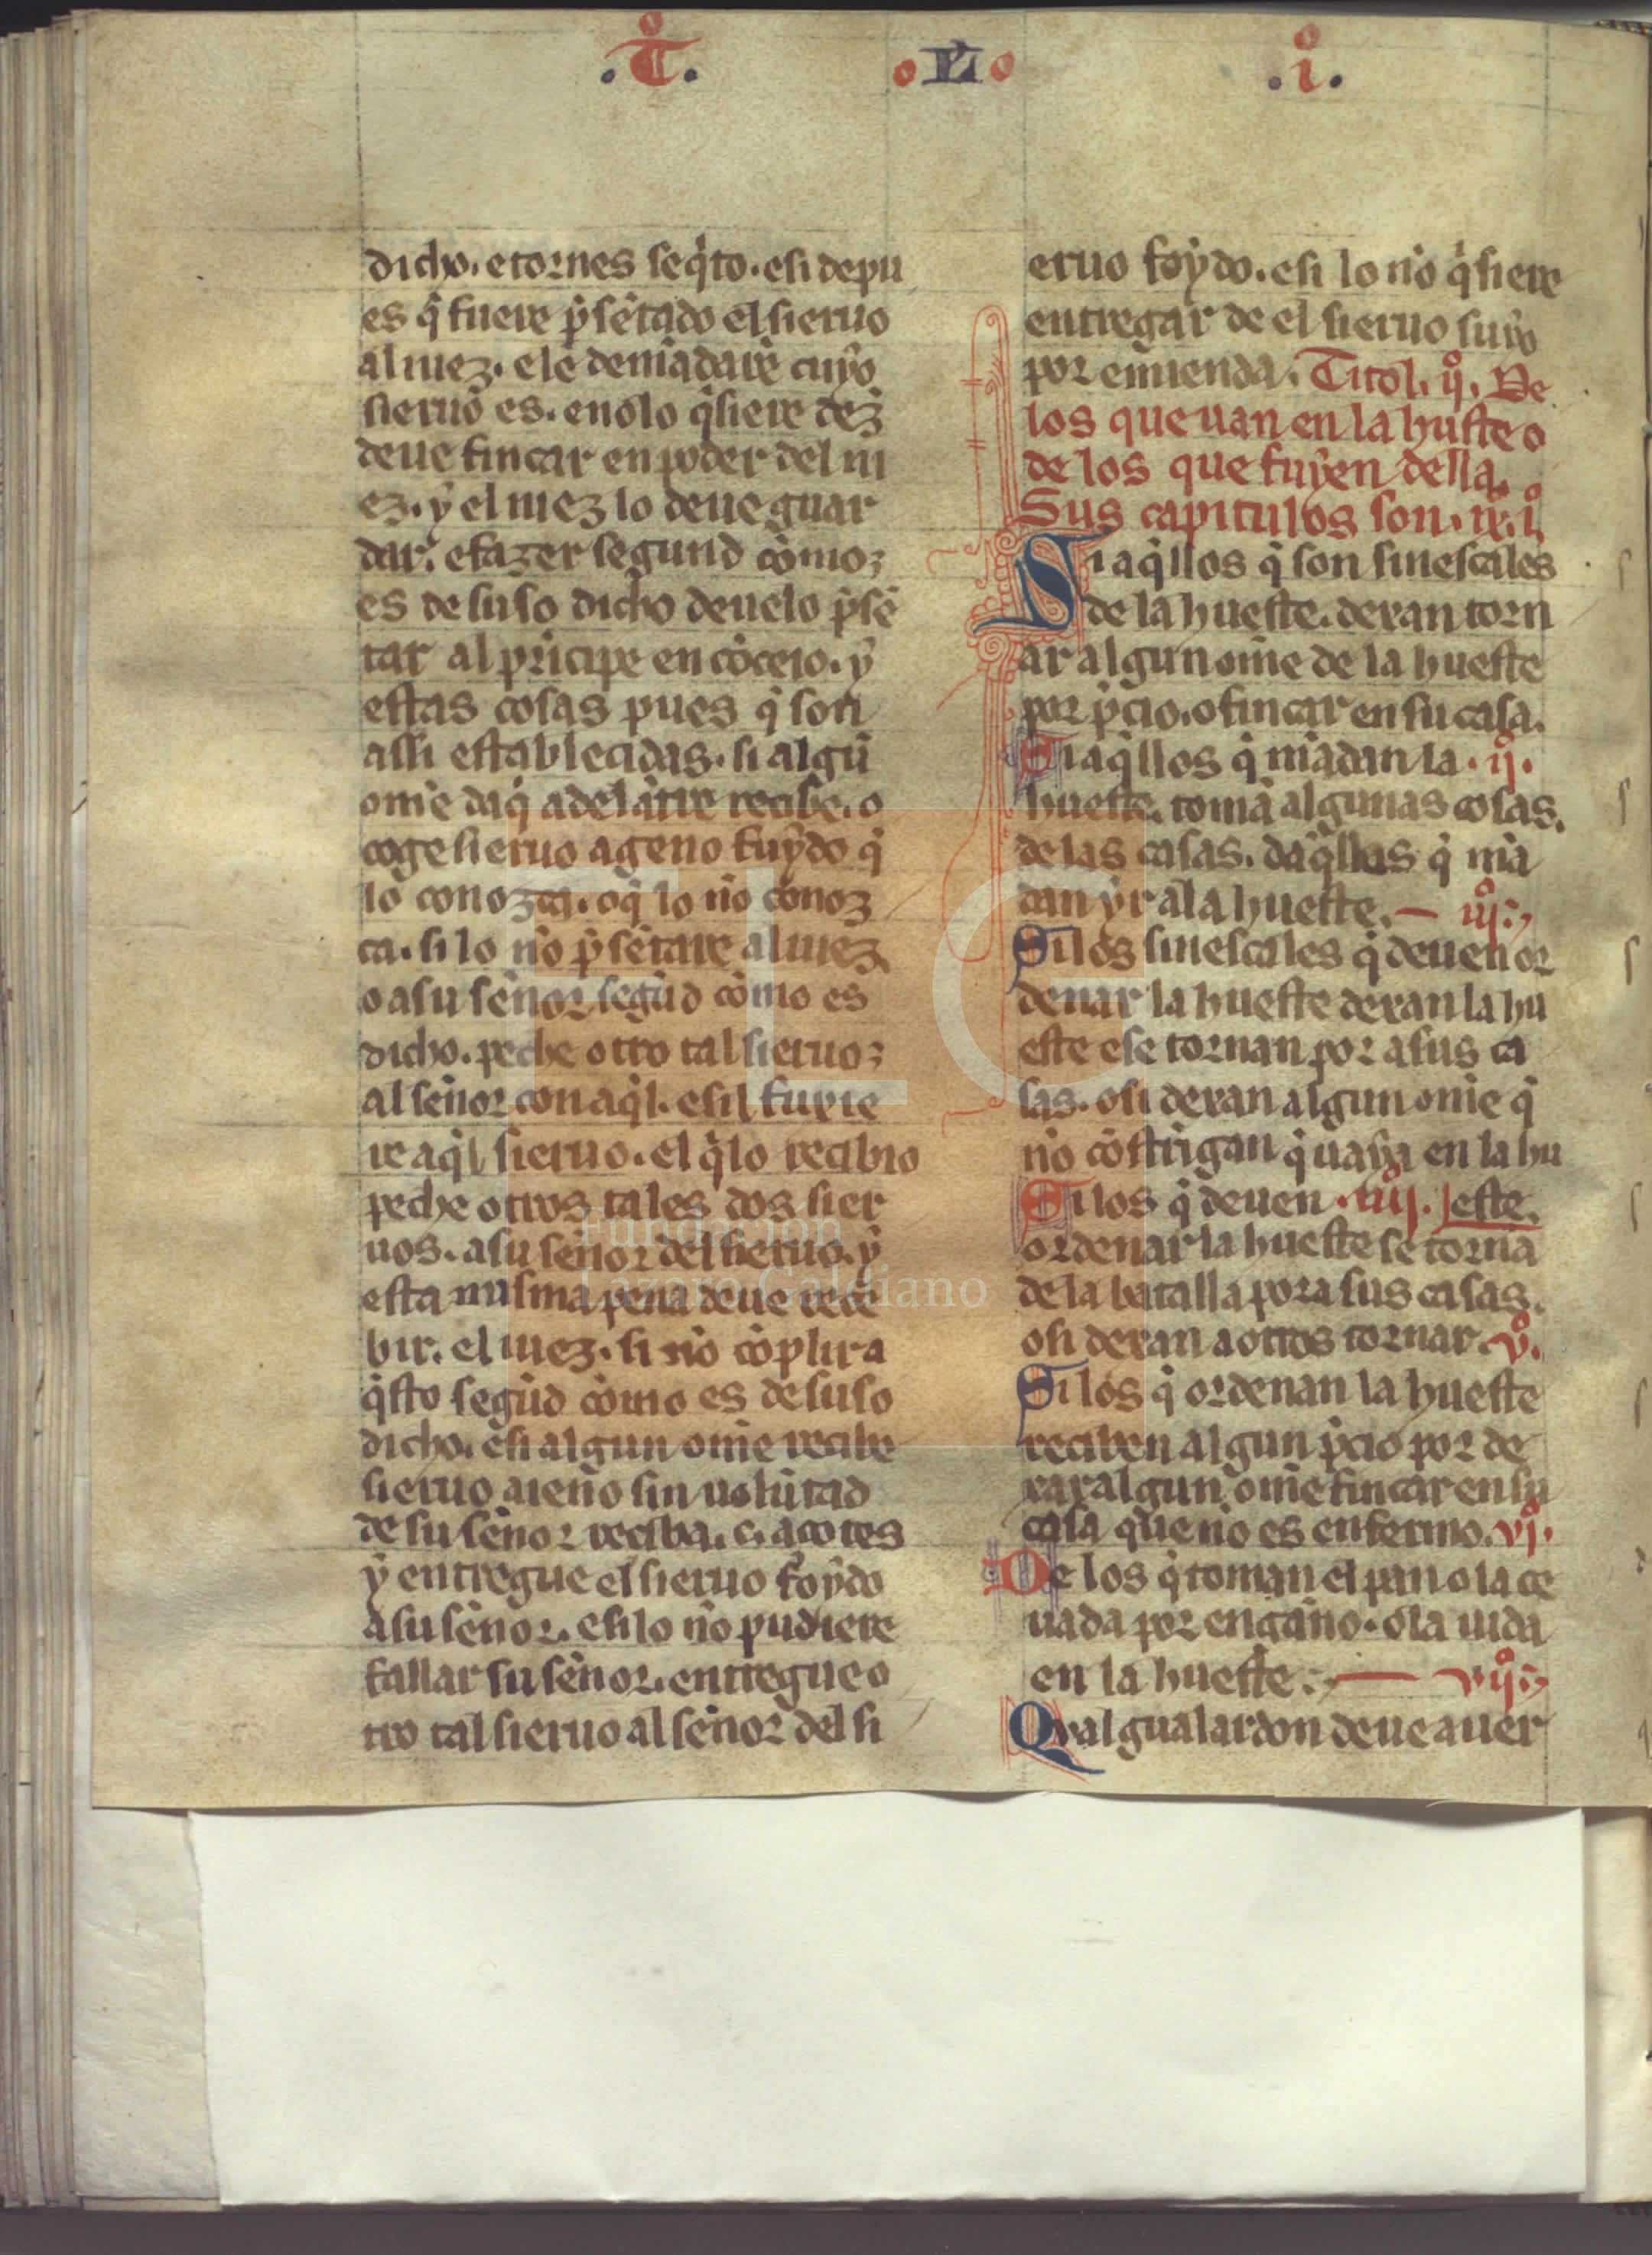 .T. .L. .i.
dicho. e tornes seq̇to. e si depu
es q̇ fuere p̄sẽtado el sieruo
al iuez. e le demãdarẽ cuyo
sieruo es. e nolo q̇siere dez̃
deue fincar en poder del iu
ez. y el iuez lo deue guar
dar. e fazer segund cõmo
es de suso dicho deuelo p̄sẽ
tar al prĩcipe en cõceio. y
estas cosas pues q̇ son
assi establecidas. si algũ
om̃e daq̇ adelãtre recibe. o
coge sieruo ageno fuydo q̇
lo conozca. o q̇ lo nõ conoz
ca. si lo nõ p̄sẽtare al iuez
o a su señor segũd cõmo es
dicho. peche otro tal sieruo
al señor con aq̇l. e sil fuxie
re aq̇l sieruo. el q̇lo recibio
peche otros tales dos sier
uos. a su señor del sieruo. y
esta misma pena deue rece
bir. el iuez. si nõ cõplira
q̇sto segũd cõmo es de suso
dicho. e si algun om̃e recibe
sieruo aieno sin uolũtad
de su señor reciba. c. açotes
y entregue el sieruo foydo
a su señor. e si lo nõ pudiere
fallar su señor. entregue o
tro tal sieruo al señor del si
eruo foydo. e si lo nõ q̇siere
entregar de el sieruo suyo
por emienda. Titol. ij̊. De
los que uan en la hueste o
de los que fuyen della.
Sus capitulos son. ix. i̊
Si aq̇llos q̇ son sinescales
de la hueste. dexan torn
ar algun om̃e de la hueste
por p̄cio. o fincar en su casa.
Si aq̇llos q̇ mãdan la . ij̊.
hueste. tomã algunas cosas.
de las casas. daq̇llos q̇ mã
dan yr a la hueste. iij̊
Si los sinescales q̇ deuen or
denar la hueste dexan la hu
este e se tornan por a sus ca
sas. o si dexan algun om̃e q̇
nõ cõstrigan q̇ uaya en la hu
Si los q̇ deuen . iiij̊. este.
ordenar la hueste se tornã
de la batalla pora sus casas.
o si dexan a otros tornar. v̊.
Si los q̇ ordenan la hueste
reciben algun p̄cio por de
xar algun om̃e fincar en su
casa que nõ es enfermo. vj̊.
De los q̇ toman el pan o la ce
uada por engaño. o la uida
en la hueste. vij̊
Qval gualardon deue auer
FLG
Fundación
Lázaro Galdiano